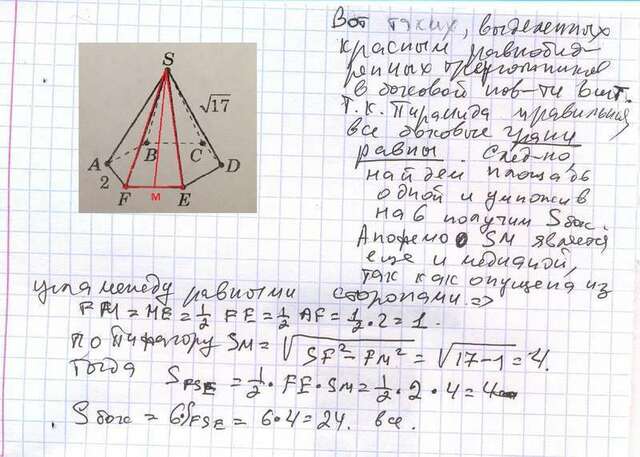 Вот таких, выделенных
красным равнобед-
ренных треугольников
в боковой пов-ти 6 шт.
Т.К. Пирамида правильная
все боковые грани
равны. След-но,
найдем площадь
одной и умножив
на 6 получим Sбок.
Апофема SM является
еще и медианой,
так как опущена из
угла между равными сторонами. =>
FM = ME = 1/2 FE = 1/2 AF = 1/2 · 2 = 1.
по Пифагору SM = √SF² - FM² = √17-1 = 4.
Тогда SFSE = 1/2 · FE · SM = 1/2 · 2 · 4 = 4
Sбок = 6·SFSE = 6·4 = 24. все.
S
√17
A
B
C
D
2
F
M
E